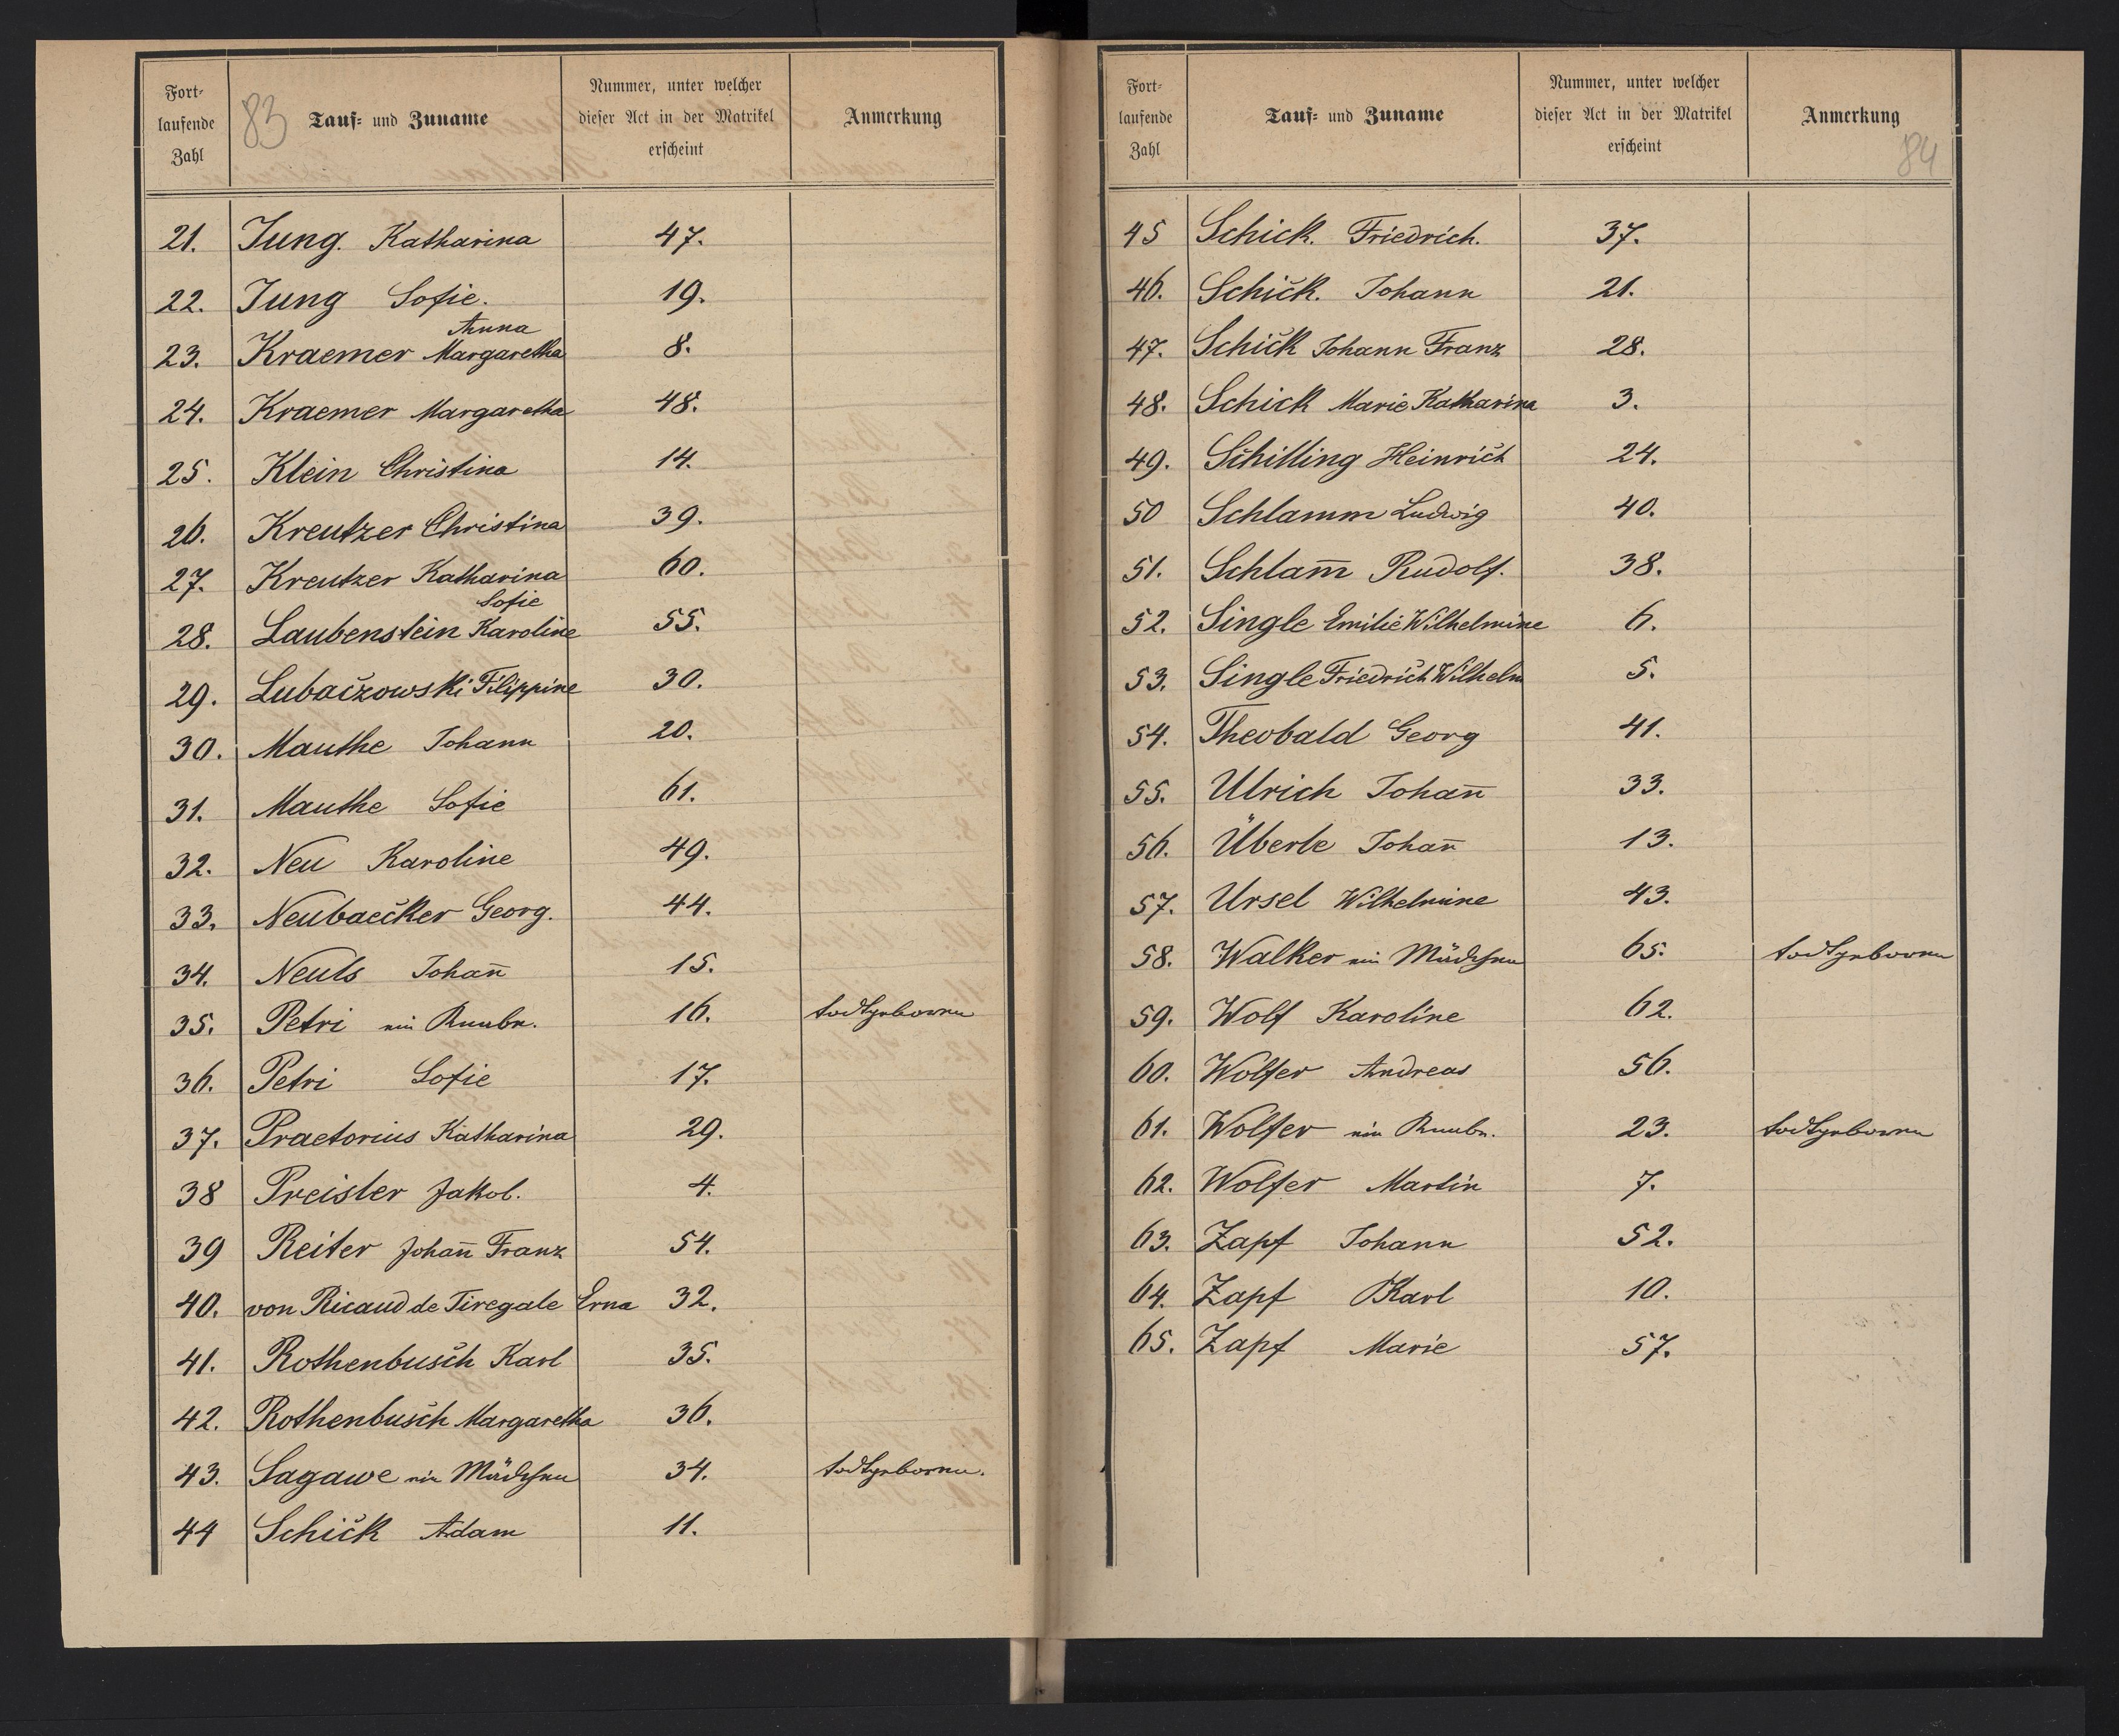 83
Fort-
laufende
Zahl
Tauf- und Zuname
Nummer, unter welcher
dieser Act in der Matrikel
erscheint
Anmerkung
21. Jung. Katharina 47.
22. Jung Sofie. 19.
Anna
23. Kraemer Margaretha 8.
24. Kraemer Margaretha 48.
25. Klein Christina 14.
26. Kreutzer Christina 39.
27. Kreutzer Katharina 60.
Sofie
28. Laubenstein Karoline 55.
29. Lubaczowski Filippine 30.
30. Mauthe Johann 20.
31. Mauthe Sofie 61.
32. Neu Karoline 49.
33. Neubaecker Georg. 44.
34. Neuls Johan̄ 15.
35. Petri ein Knabe. 16. todtgeboren
36. Petri Sofie 17.
37. Praetorius Katharina 29.
38 Preisler Jakob. 4.
39 Reiter Johan̄ Franz 54.
40. von Ricaud de Tiregale Erna 32.
41. Rothenbusch Karl 35.
42. Rothenbusch Margaretha 36.
43. Sagawe ein Mädchen 34. todtgeboren.
44 Schick Adam 11.
84
Fort-
laufende
Zahl
Tauf- und Zuname
Nummer, unter welcher
dieser Act in der Matrikel
erscheint
Anmerkung
45 Schick. Friedrich. 37.
46. Schick. Johann 21.
47. Schick Johann Franz 28.
48. Schick Marie Katharina 3.
49. Schilling Heinrich 24.
50 Schlamm Ludwig 40.
51. Schlam̄ Rudolf. 38.
52. Single Emilie Wilhelmine 6.
53. Single Friedrich Wilhelm 5.
54. Theobald Georg 41.
55. Ulrich Johan̄ 33.
56. Überle Johan̄ 13.
57. Ursel Wilhelmine 43.
58. Walker ein Mädchen 65. todtgeboren
59. Wolf Karoline 62.
60. Wolfer Andreas 56.
61. Wolfer ein Knabe. 23. todtgeboren
62. Wolfer Martin 7.
63. Zapf Johann 52.
64. Zapf Karl 10.
65. Zapf Marie 57.